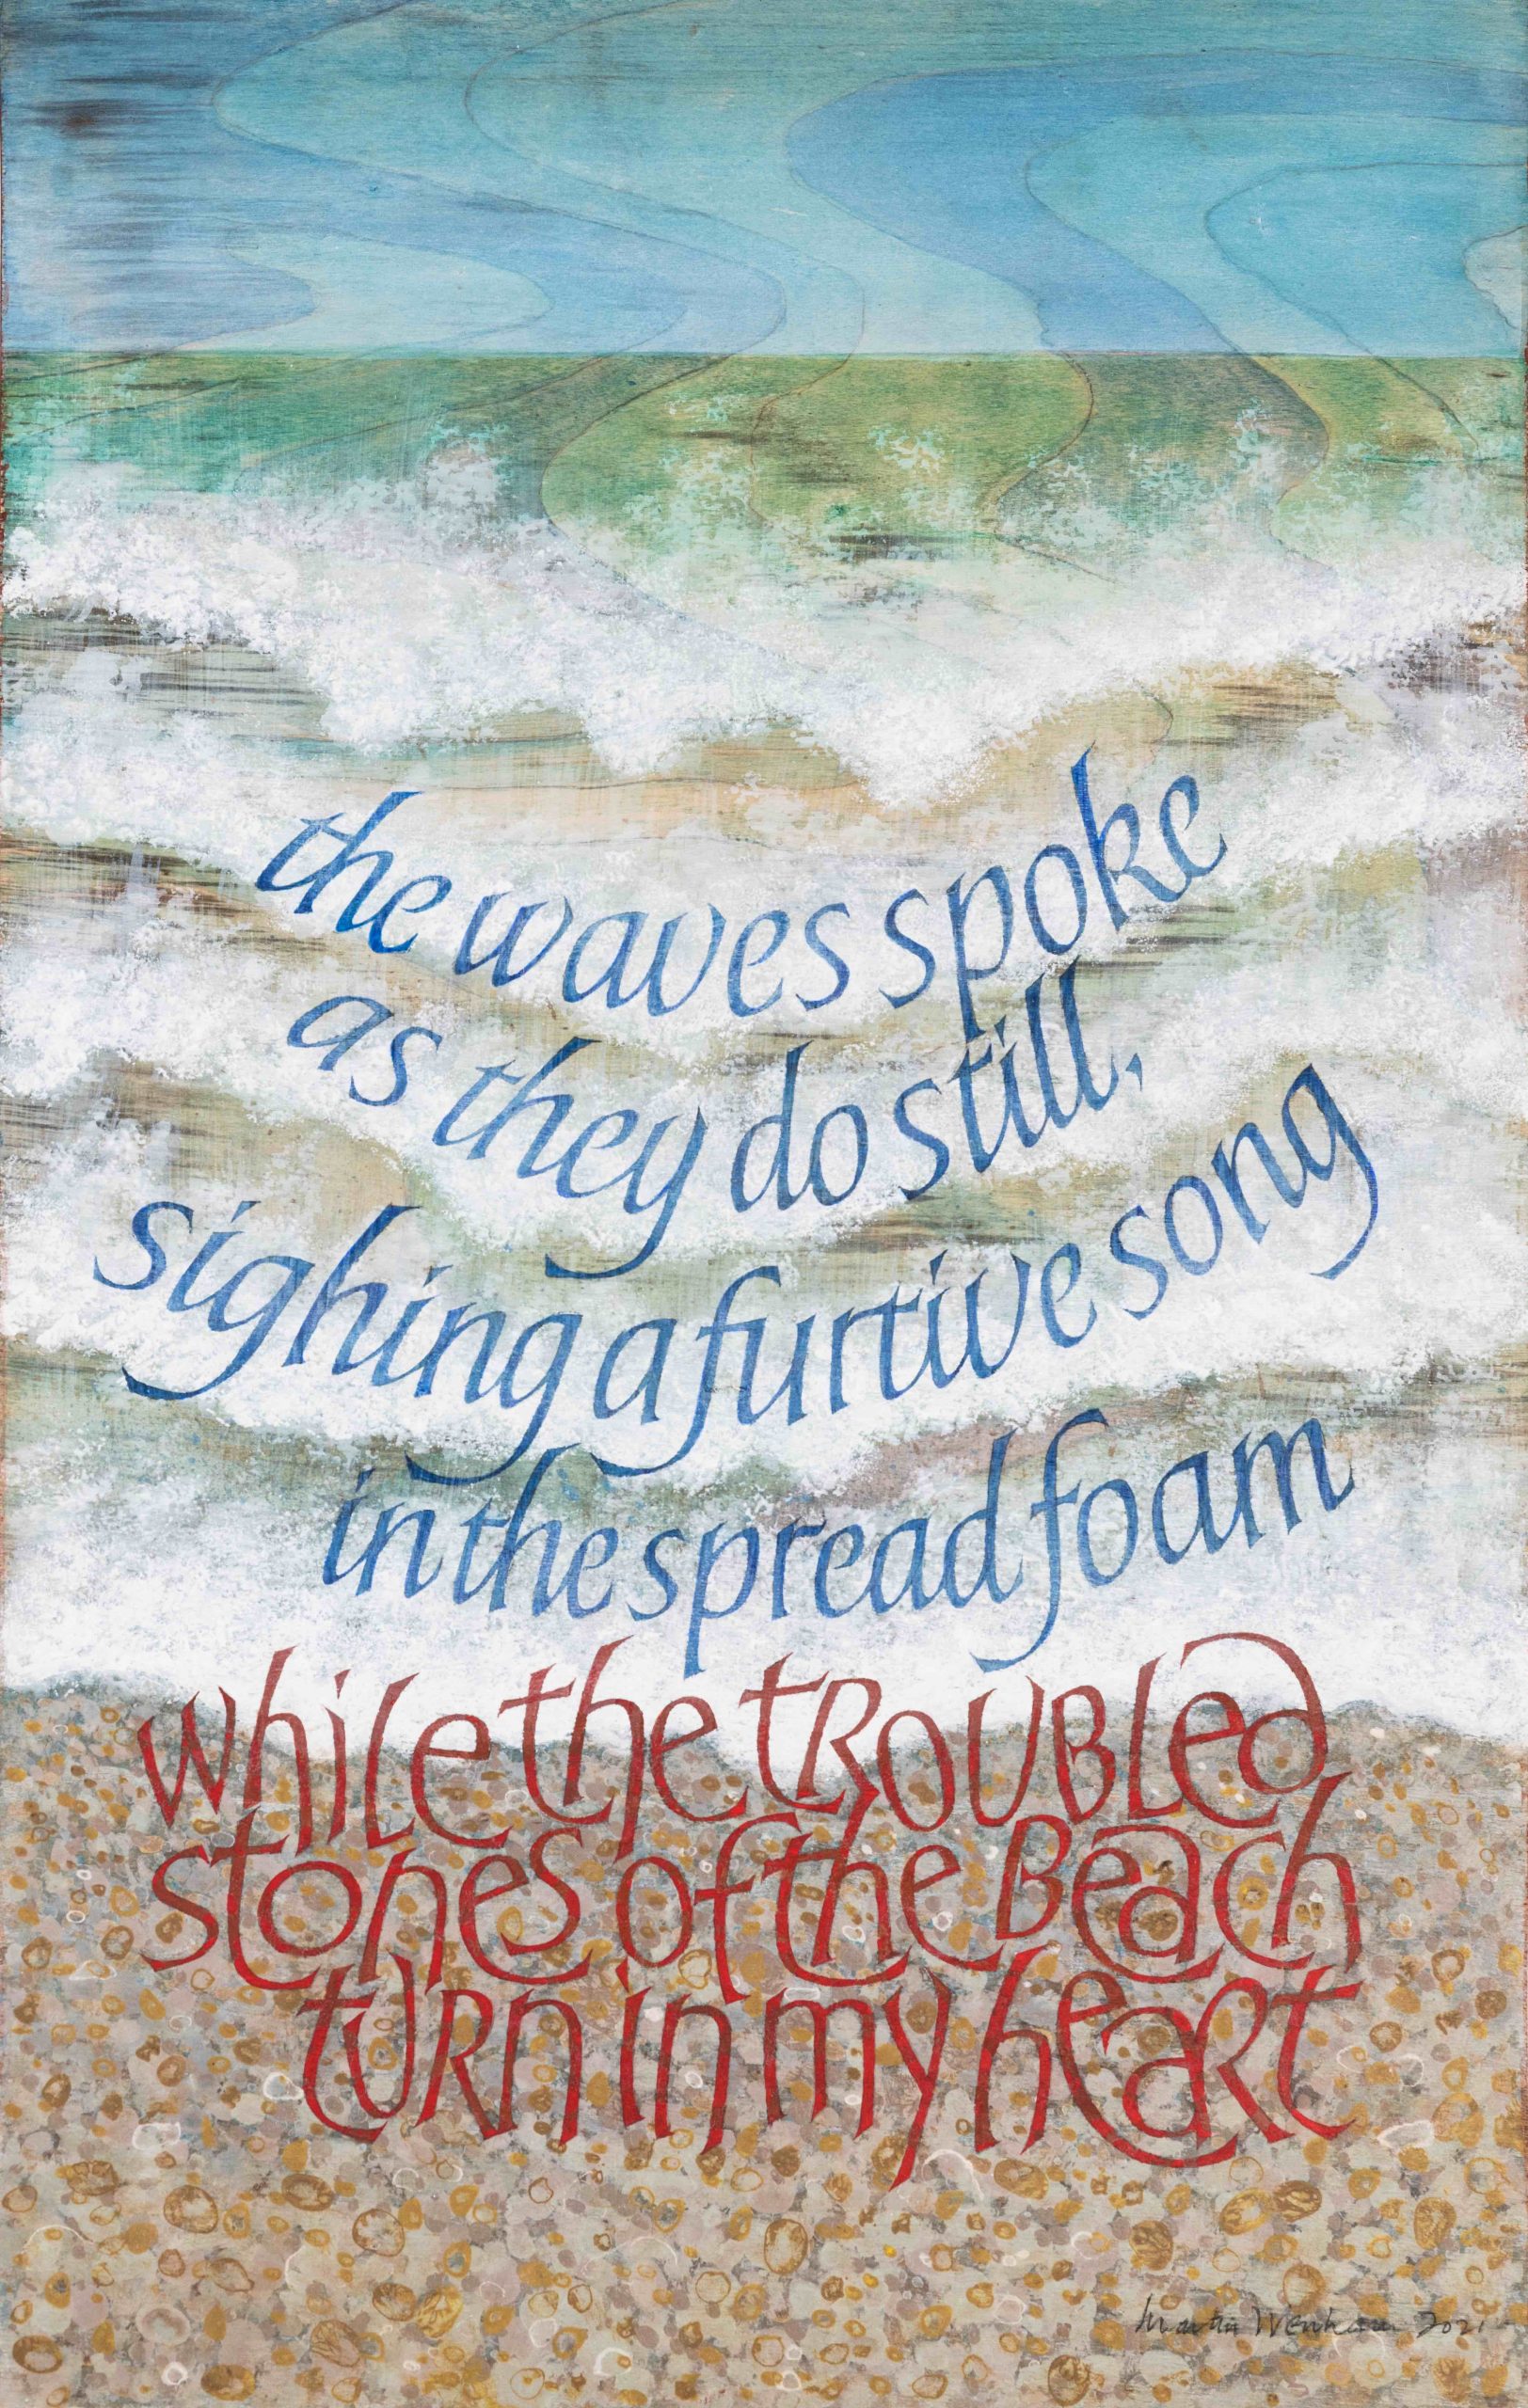 the waves spoke
as they do still,
sighing a furtive song
in the spread foam
while the tRoUBLed
stones of the Beach
tURn in my heaRt
Martin Wenham 2021